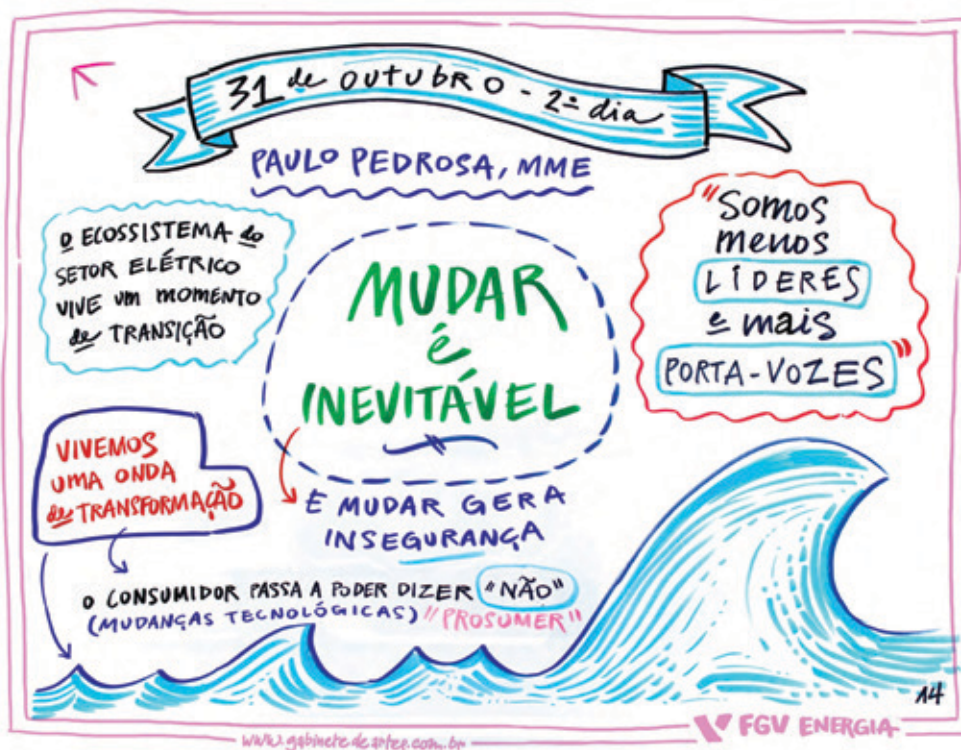 31 de OUTUBRO - 2º dia
PAULO PEDROSA, MME
O ECOSSISTEMA do
SETOR ELÉTRICO
VIVE UM MOMENTO
de TRANSIÇÃO
MUDAR
é
INEVITÁVEL
"SOMOS
menos
LÍDERES
e mais
PORTA-VOZES"
VIVEMOS
UMA ONDA
de TRANSFORMAÇÃO
E MUDAR GERA
INSEGURANÇA
O CONSUMIDOR PASSA A PODER DIZER "NÃO"
(MUDANÇAS TECNOLÓGICAS) "PROSUMER"
14
www.gabinetedeartee.com.br
FGV ENERGIA